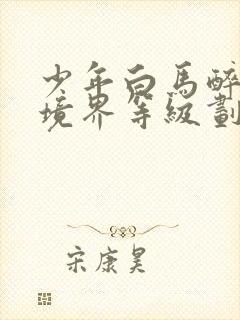 少年白馬醉
境界等級劃
宋康昊